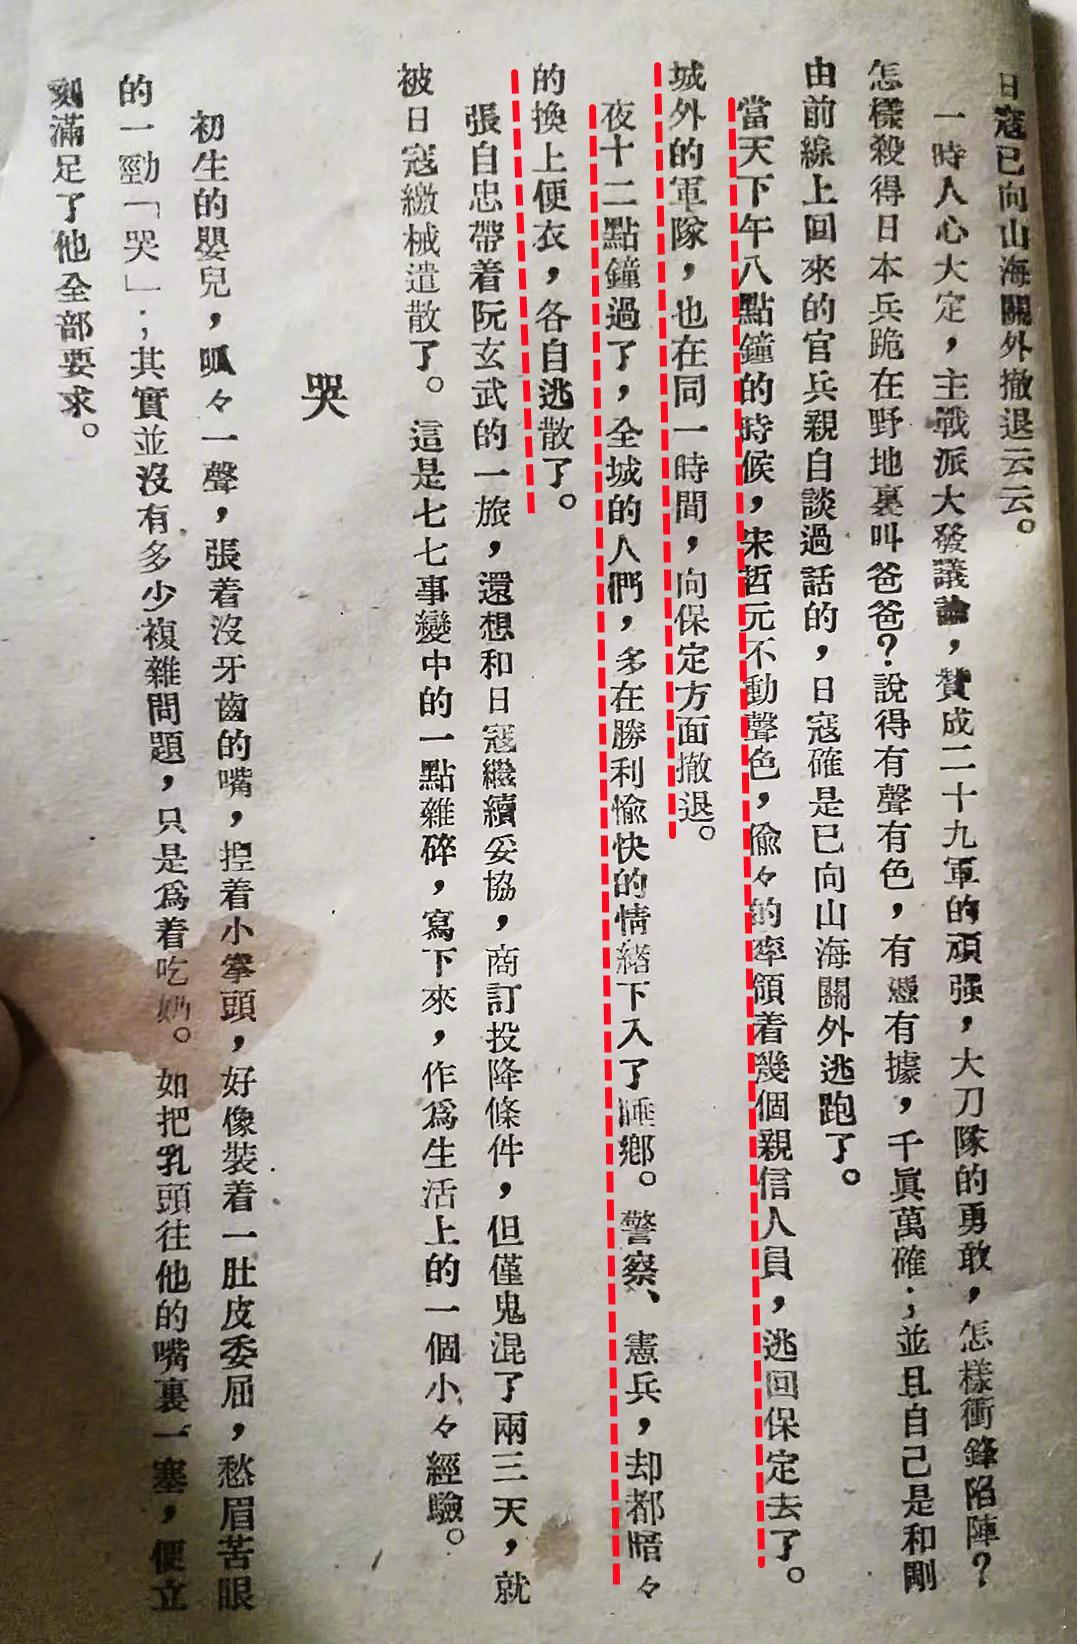 日寇已向山海關外撤退云云。
一時人心大定，主戰派大發議論，贊成二十九軍的頑强，大刀隊的勇敢，怎樣衝鋒陷陣？
怎樣殺得日本兵跪在野地裏叫爸爸？說得有聲有色，有憑有據，千眞萬確；並且自己是和剛
由前線上回來的官兵親自談過話的，日寇確是已向山海關外逃跑了。
當天下午八點鐘的時候，宋哲元不動聲色，偸々的率領着幾個親信人員，逃回保定去了。
城外的軍隊，也在同一時間，向保定方面撤退。
夜十二點鐘過了，全城的人們，多在勝利愉快的情緒下入了睡鄉。警察、憲兵，却都暗々
的換上便衣，各自逃散了。
張自忠帶着阮玄武的一旅，還想和日寇繼續妥協，商訂投降條件，但僅鬼混了兩三天，就
被日寇繳械遣散了。這是七七事變中的一點雜碎，寫下來，作爲生活上的一個小々經驗。
哭
初生的嬰兒，呱々一聲，張着沒牙齒的嘴，揑着小拳頭，好像裝着一肚皮委屈，愁眉苦眼
的一勁「哭」；其實並沒有多少複雜問題，只是爲着吃奶。如把乳頭往他的嘴裏一塞，便立
刻滿足了他全部要求。